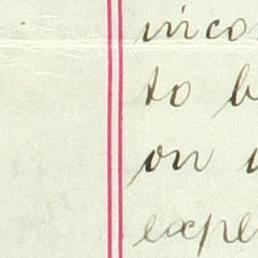 inco
to b
on
expe